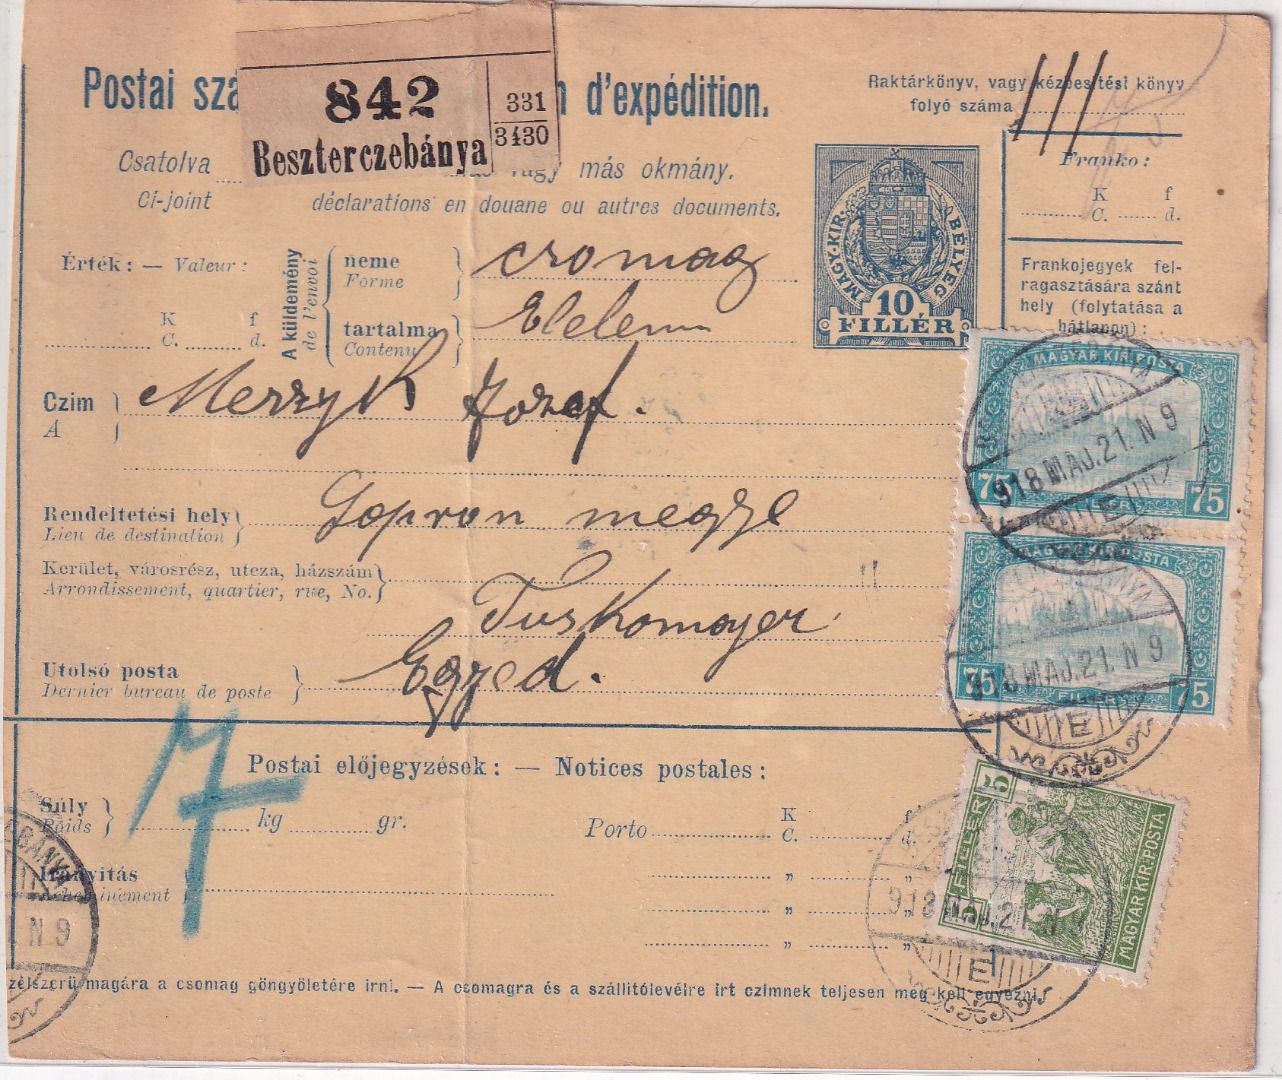 Postai szá
n d'expédition.
842
Beszterczebánya
331
3430
Raktárkönyv, vagy kézbesítési könyv
folyó száma
Csatolva
vagy más okmány.
Ci-joint
déclarations en douane ou autres documents.
Franko:
K f
C. d.
MAGY. KIR. BÉLYEG
10
FILLÉR
Frankojegyek fel-
ragasztására szánt
hely (folytatása a
hátlapon):
Érték: — Valeur:
K f
C. d.
A küldemény
de l'envoi
neme
Forme
csomag
tartalma
Contenu
Elelem
Czim
A
Merzyk Jozef.
Rendeltetési hely
Lieu de destination
Sopron megye
Kerület, városrész, utcza, házszám
Arrondissement, quartier, rue, No.
Utolsó posta
Dernier bureau de poste
Egyed.
MAGYAR KIR. POSTA
75 75
918 MAJ. 21. N 9
E
75 75
918 MAJ. 21. N 9
E
Postai előjegyzések: — Notices postales:
Súly
Poids
7
kg gr.
Porto
K f
C. d.
" "
" "
" "
Irányitás
Acheminement
5 FILLÉR 5
MAGYAR KIR. POSTA
918 MAJ. 21. N
E
N 9
zélszerű magára a csomag göngyöletére irni. — A csomagra és a szállitólevélre irt czimnek teljesen meg kell egyezni.